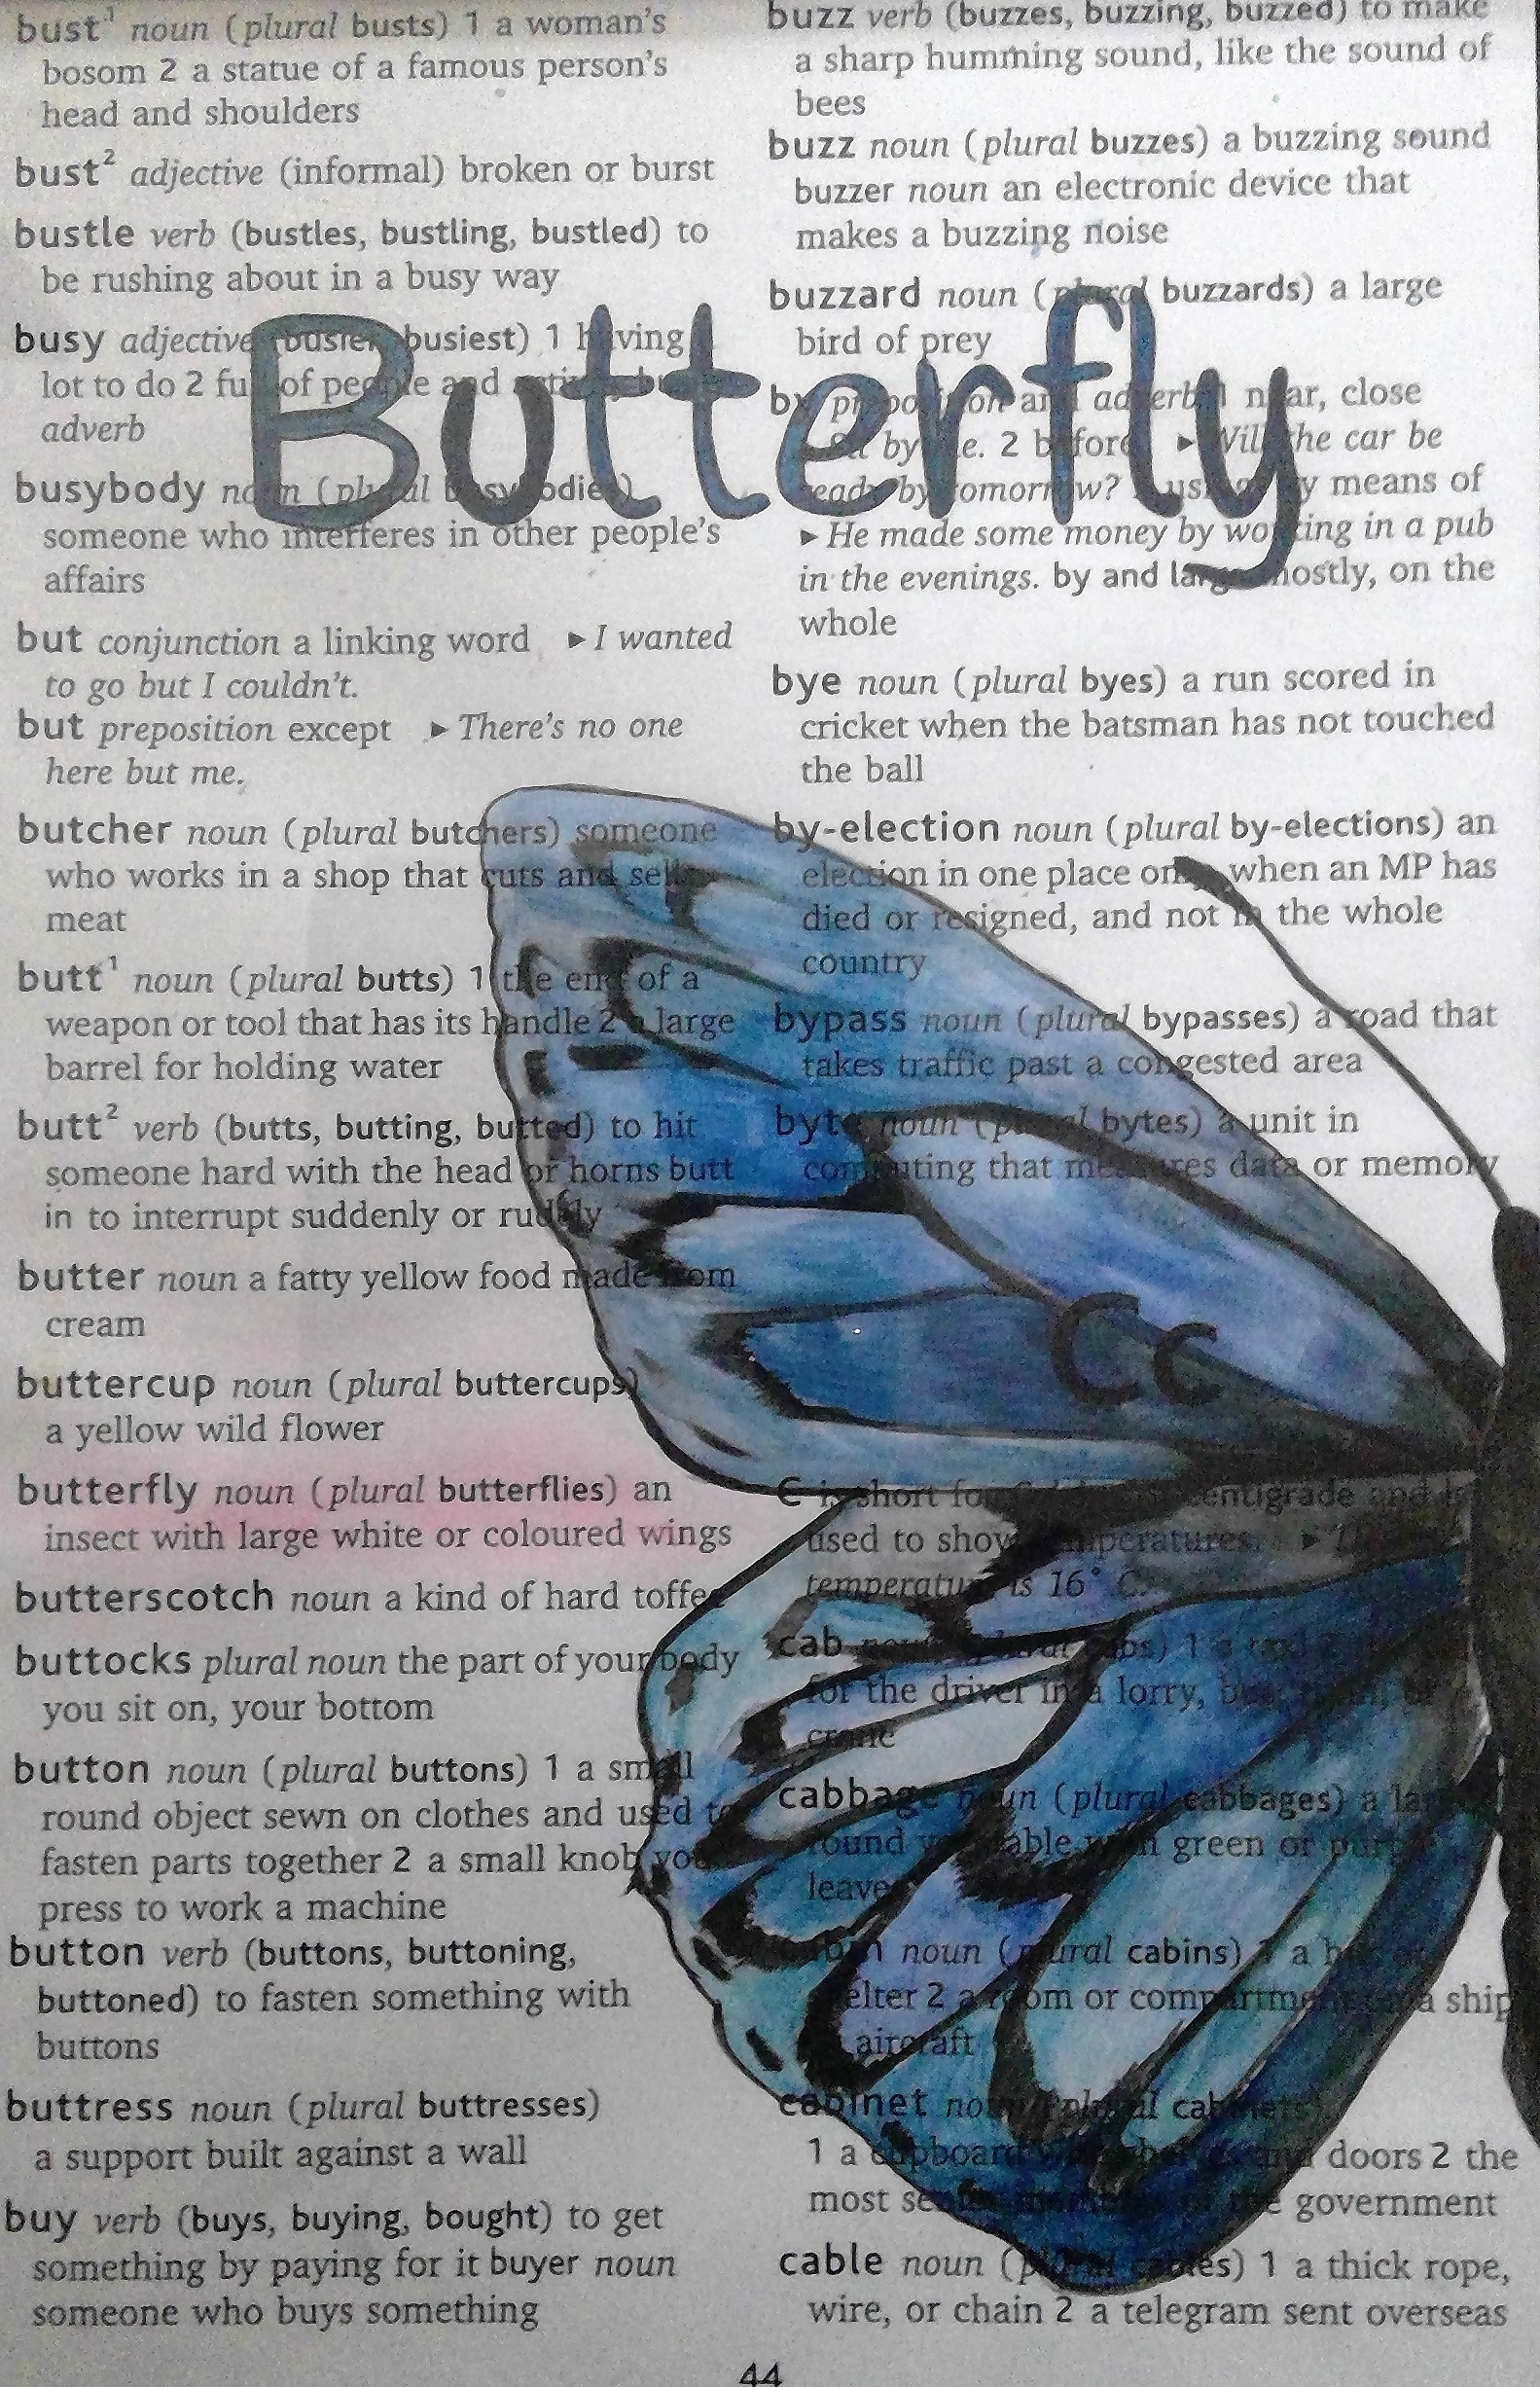 bust¹ noun (plural busts) 1 a woman's
bosom 2 a statue of a famous person's
head and shoulders
bust² adjective (informal) broken or burst
bustle verb (bustles, bustling, bustled) to
be rushing about in a busy way
busy adjective (busier, busiest) 1 having
lot to do 2 full of people and
adverb
busybody noun (plural busybodies)
someone who interferes in other people's
affairs
but conjunction a linking word ▸ I wanted
to go but I couldn't.
but preposition except ▸ There's no one
here but me.
butcher noun (plural butchers) someone
who works in a shop that cuts and sells
meat
butt¹ noun (plural butts) 1 the end of a
weapon or tool that has its handle 2 a large
barrel for holding water
butt² verb (butts, butting, butted) to hit
someone hard with the head or horns butt
in to interrupt suddenly or rudely
butter noun a fatty yellow food made from
cream
buttercup noun (plural buttercups)
a yellow wild flower
butterfly noun (plural butterflies) an
insect with large white or coloured wings
butterscotch noun a kind of hard toffee
buttocks plural noun the part of your body
you sit on, your bottom
button noun (plural buttons) 1 a small
round object sewn on clothes and used to
fasten parts together 2 a small knob you
press to work a machine
button verb (buttons, buttoning,
buttoned) to fasten something with
buttons
buttress noun (plural buttresses)
a support built against a wall
buy verb (buys, buying, bought) to get
something by paying for it buyer noun
someone who buys something
Butterfly
buzz verb (buzzes, buzzing, buzzed) to make
a sharp humming sound, like the sound of
bees
buzz noun (plural buzzes) a buzzing sound
buzzer noun an electronic device that
makes a buzzing noise
buzzard noun (plural buzzards) a large
bird of prey
by preposition and adverb 1 near, close
by me. 2 before ▸ Will the car be
ready by tomorrow? 3 using, by means of
▸ He made some money by working in a pub
in the evenings. by and large mostly, on the
whole
bye noun (plural byes) a run scored in
cricket when the batsman has not touched
the ball
by-election noun (plural by-elections) an
election in one place only, when an MP has
died or resigned, and not in the whole
country
bypass noun (plural bypasses) a road that
takes traffic past a congested area
byte noun (plural bytes) a unit in
computing that measures data or memory
Cc
C is short for centigrade and is
used to show temperatures. ▸
temperature is 16° C.
cab noun (plural cabs) 1 a taxi
for the driver in a lorry, bus, train, or
crane
cabbage noun (plural cabbages) a large
round vegetable with green or purple
leaves
cabin noun (plural cabins) 1 a hut or
shelter 2 a room or compartment in a ship
aircraft
cabinet noun (plural cabinets)
1 a cupboard with shelves and doors 2 the
most senior of the government
cable noun (plural cables) 1 a thick rope,
wire, or chain 2 a telegram sent overseas
44